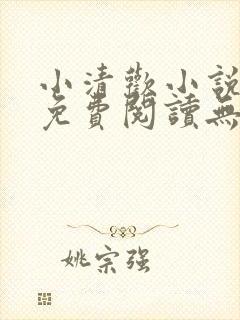 小清歡小說
免費閱讀無
姚宗强